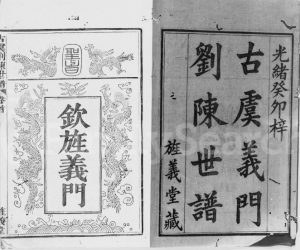 光緒癸卯梓
古虞義門
劉陳世譜
旌義堂藏
聖旨
欽旌義門